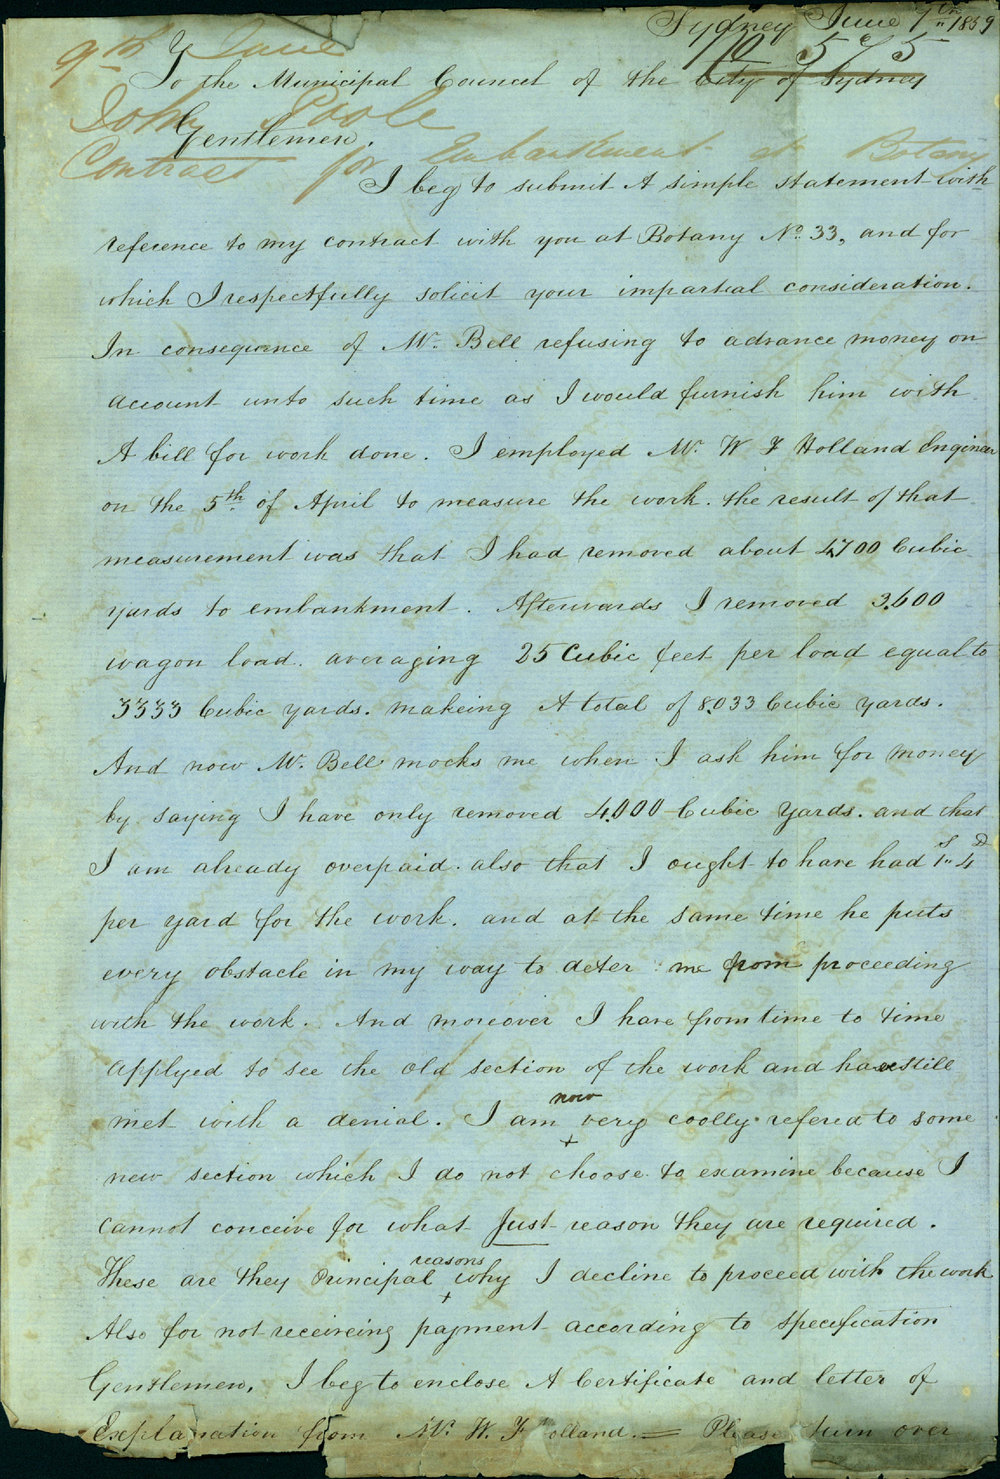 Sydney June 7th 1859
No 575
9th June
To the Municipal Council of the City of Sydney
John Poole
Gentlemen,
Contract for Embankment at Botany
I beg to submit A simple statement with
reference to my contract with you at Botany No. 33, and for
which I respectfully solicit your impartial consideration.
In consequence of Mr. Bell refusing to advance money on
account unto such time as I would furnish him with
A bill for work done. I employed Mr. W F Holland Engineer
on the 5th of April to measure the work. the result of that
measurement was that I had removed about 4,700 Cubic
yards to embankment. Afterwards I removed 3,600
wagon load. averaging 25 Cubic feet per load equal to
3333 Cubic yards. makeing A total of 8,033 Cubic yards.
And now Mr. Bell mocks me when I ask him for money
by saying I have only removed 4,000 Cubic Yards. and that
I am already overpaid. also that I ought to have had 1s„4D
per yard for the work. and at the same time he puts
every obstacle in my way to deter me from proceeding
with the work. And moreover I have from time to time
applyed to see the old section of the work and have still
met with a denial. I am now very coolly refered to some
new section which I do not choose to examine because I
cannot conceive for what Just reason they are required.
These are they Principal reasons why I decline to proceed with the work
Also for not receiveing payment according to specification
Gentlemen, I beg to enclose A Certificate and letter of
Explanation from Mr. W. F Holland. = Please turn over